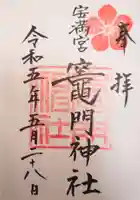 奉拝
宝満宮
竈門神社
令和五年五月二十八日